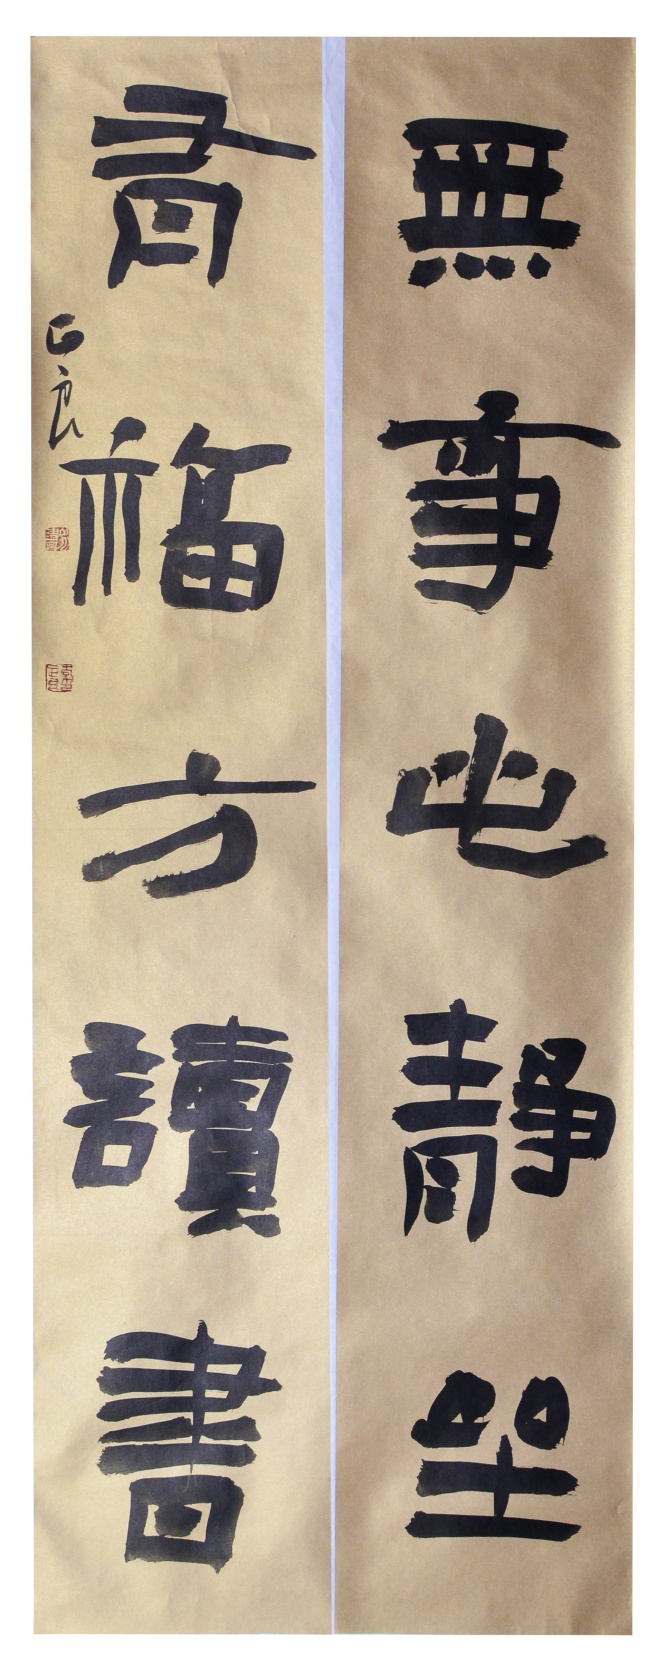 無事此靜坐
有福方讀書
正良